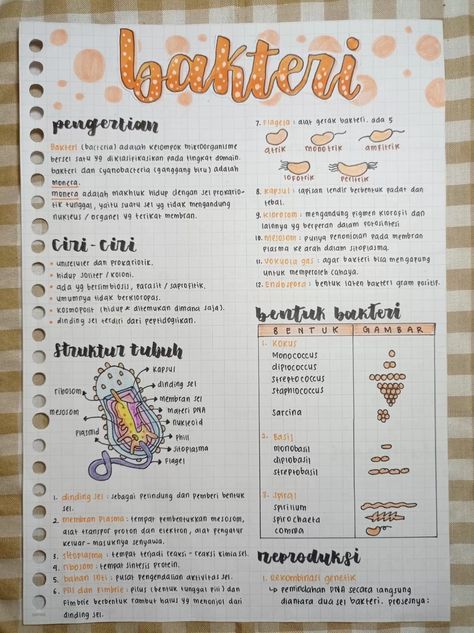 bakteri
pengertian
Bakteri (bacteria) adalah kelompok mikroorganisme
bersel satu yg diklasifikasikan pada tingkat domain.
bakteri dan cyanobacteria (ganggang biru) adalah
monera.
monera adalah makhluk hidup dengan sel prokario-
tik tunggal, yaitu suatu sel yg tidak mengandung
nukleus / organel yg terikat membran.
ciri-ciri
• uniseluler dan prokariotik.
• hidup soliter / koloni.
• ada yg bersimbiosis, parasit / saprofitik.
• umumnya tidak berkloroplas.
• kosmopolit (hidup & ditemukan dimana saja).
• dinding sel terdiri dari peptidoglikan.
struktur tubuh
kapsul
dinding sel
membran sel
materi DNA
nukleoid
Phili
sitoplasma
Flagel
ribosom
mesosom
plasmid
1. dinding sel : sebagai pelindung dan pemberi bentuk
sel.
2. membran plasma : tempat pembentukkan mesosom,
alat transpor proton dan elektron, alat pengatur
keluar-masuknya senyawa.
3. sitoplasma : tempat terjadi reaksi-reaksi kimia sel.
4. ribosom : tempat sintesis protein.
5. bahan inti : pusat pengendalian aktivitas sel.
6. Pili dan Fimbrie : pilus (bentuk tunggal pili) dan
Fimbrie berbentuk rambut halus yg menonjol dari
dinding sel.
7. Flagela : alat gerak bakteri. ada 5
atrik
monotrik
amfitrik
lopotrik
peritrik
8. kapsul : lapisan lendir berbentuk padat dan
tebal.
9. klorosom : mengandung pigmen klorofil dan
lainnya yg berperan dalam fotosintesi
10. mesosom : punya penonjolan pada membran
plasma ke arah dalam sitoplasma.
11. vakuola gas : agar bakteri bisa mengapung
untuk memperoleh cahaya.
12. Endospora : bentuk laten bakteri gram positif.
bentuk bakteri
BENTUK
GAMBAR
1. Kokus
Monococcus
diplococcus
streptococcus
staphlococcus
sarcina
2. Basil
monobasil
diplobasil
streptobasil
3. spiral
spirilium
spirochaeta
comma
reproduksi
1. Rekombinasi genetik
↳ pemindahan DNA secara langsung
diantara dua sel bakteri. prosesnya: